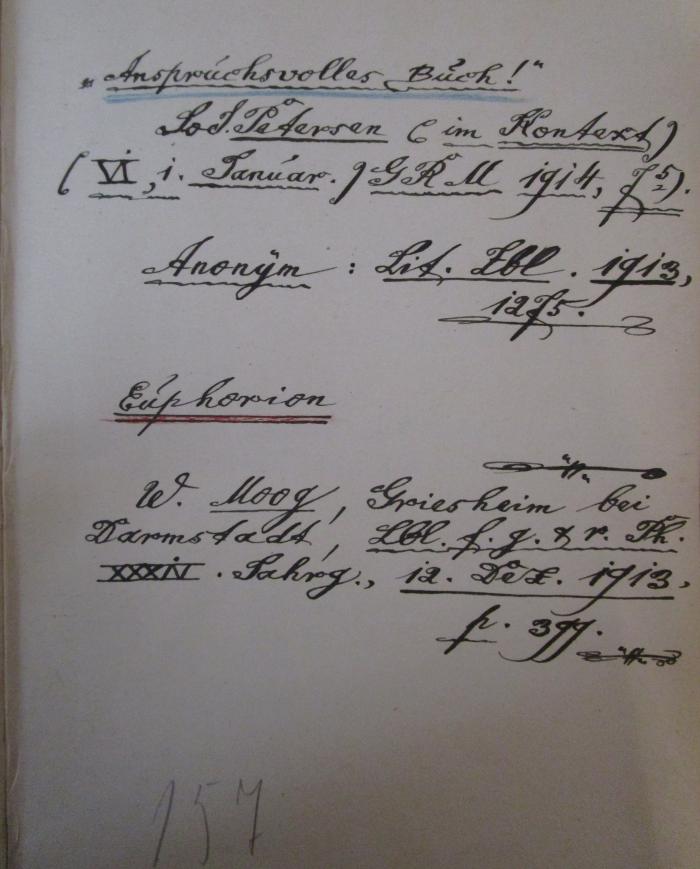 „Anspruchsvolles Buch!“
Petersen (im Kontext)
(VI, 1. Januar.) GRM 1914, 75).
Anonym : Lit. Zbl. 1913,
1275.
Euphorion
W. Moog, Griesheim bei
Darmstadt, Lbl. f. g. & r. Ph.
XXXIV. Jahrg., 12. Dez. 1913,
p. 399.
157